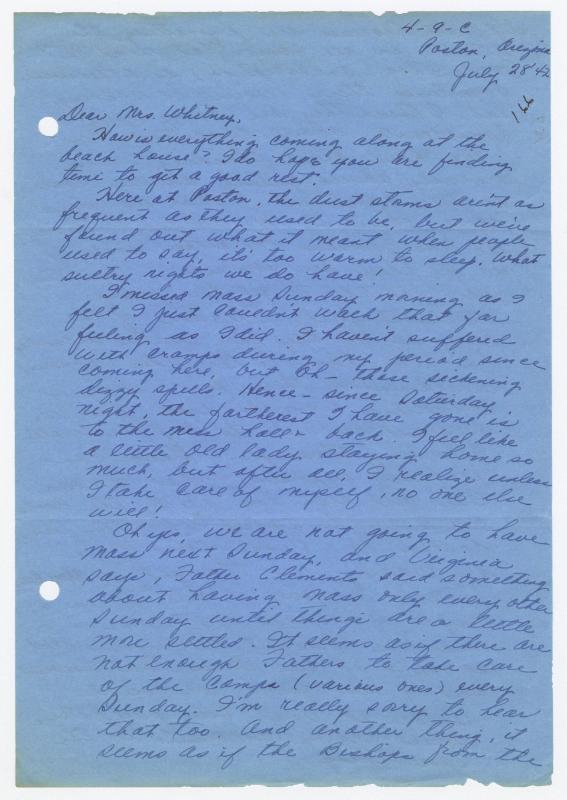 4-9-C
Poston, Arizona
July 28 '42
166
Dear Mrs. Whitney,
How is everything coming along at the
beach house? I do hope you are finding
time to git a good rest.
Here at Poston, the dust storms arint as
frequent as they used to be, but we've
found out what it meant when people
used to say, its' too warm to sleep. What
sultry nights we do have!
I missed mass Sunday morning as I
felt I just couldn't walk that far
feeling as I did. I haven't suffered
with cramps during my period since
coming here, but Oh - those sickening
dizzy spells. Hence - since Saturday
night, the fartherest I have gone is
to the mess hall & back. I feel like
a little old lady staying home so
much, but after all, I realize unless
I take care of myself, no one else
will!
Oh yes, we are not going to have
mass next Sunday, and Virginia
says, Father Clements said something
about having mass only every other
Sunday until things are a little
more settled. It seems as if there are
not enough Fathers to take care
of the camps (various ones) every
Sunday. I'm really sorry to hear
that too. And another thing, it
seems as if the Bishops from the